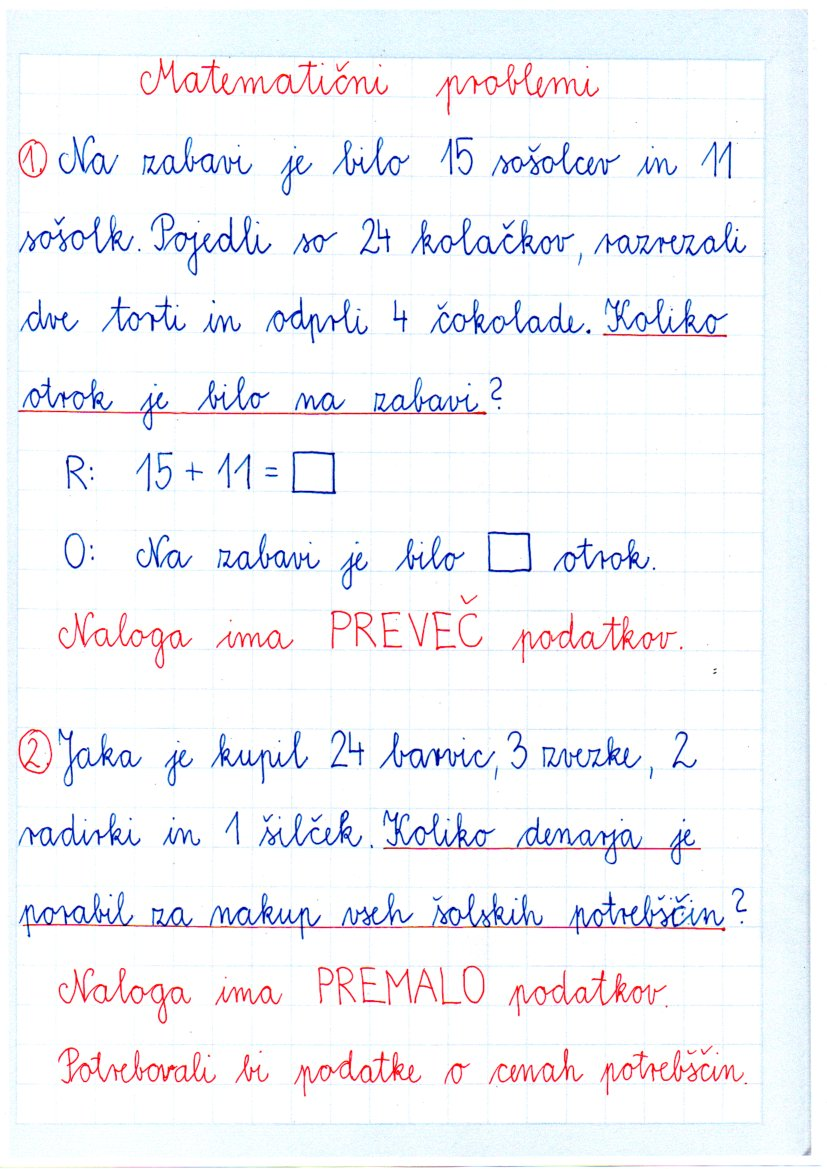 Matematični problemi
1. Na zabavi je bilo 15 sošolcev in 11
sošolk. Pojedli so 24 kolačkov, razrezali
dve torti in odprli 4 čokolade. Koliko
otrok je bilo na zabavi?
R: 15 + 11 = □
O: Na zabavi je bilo □ otrok.
Naloga ima PREVEČ podatkov.
2. Jaka je kupil 24 barvic, 3 zvezke, 2
radirki in 1 šilček. Koliko denarja je
porabil za nakup vseh šolskih potrebščin?
Naloga ima PREMALO podatkov.
Potrebovali bi podatke o cenah potrebščin.